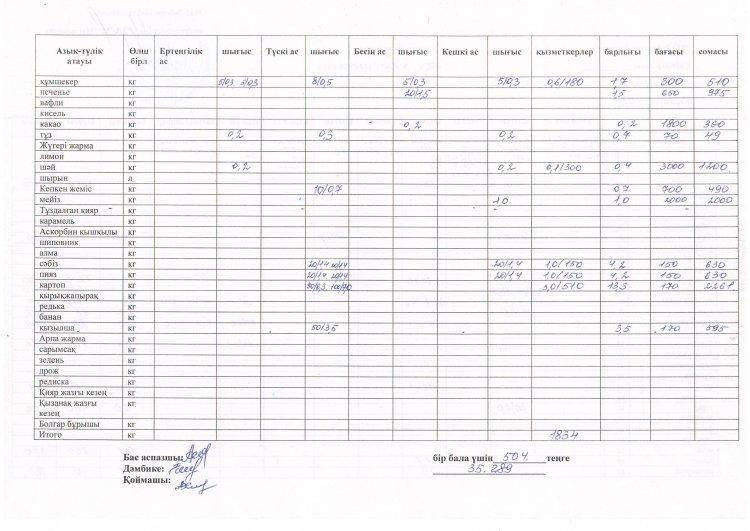 Азық-түлік атауы Өлш бірл Ертеңгілік ас шығыс Түскі ас шығыс Бесін ас шығыс Кешкі ас шығыс қызметкерлер барлығы бағасы сомасы
құмшекер кг 5/03 5/03 8/0,5 5/03 5/0,3 0,6/180 1,7 300 510
печенье кг 20/1,5 1,5 650 975
вафли кг
кисель кг
какао кг 0,2 0,2 1800 360
тұз кг 0,2 0,3 0,2 0,7 70 49
Жүгері жарма кг
лимон кг
шәй кг 0,2 0,2 0,1/300 0,4 3000 1200
шырын л
Кепкен жеміс кг 10/0,7 0,7 700 490
мейіз кг 1,0 1,0 2000 2000
Тұздалған қияр кг
карамель кг
Аскорбин қышқылы кг
шиповник кг
алма кг
сәбіз кг 20/1,4 20/1,4 20/1,4 1,0/150 4,2 150 630
пияз кг 20/1,4 20/1,4 20/1,4 1,0/150 4,2 150 630
картоп кг 90/6.3 100/7,0 3,0/510 13.3 170 2261
қырыққапырақ кг
редька кг
банан кг
қызылша кг 50/3.5 3,5 170 595
Арпа жарма кг
сарымсақ кг
зелень кг
дрож кг
редиска кг
Қияр жазғы кезең кг
Қызанақ жазғы кезең кг
Болгар бұрышы кг
Итого кг 1834
Бас аспазшы: бір бала үшін 504. теңге
Дәмбике: 35.289
Қоймашы: